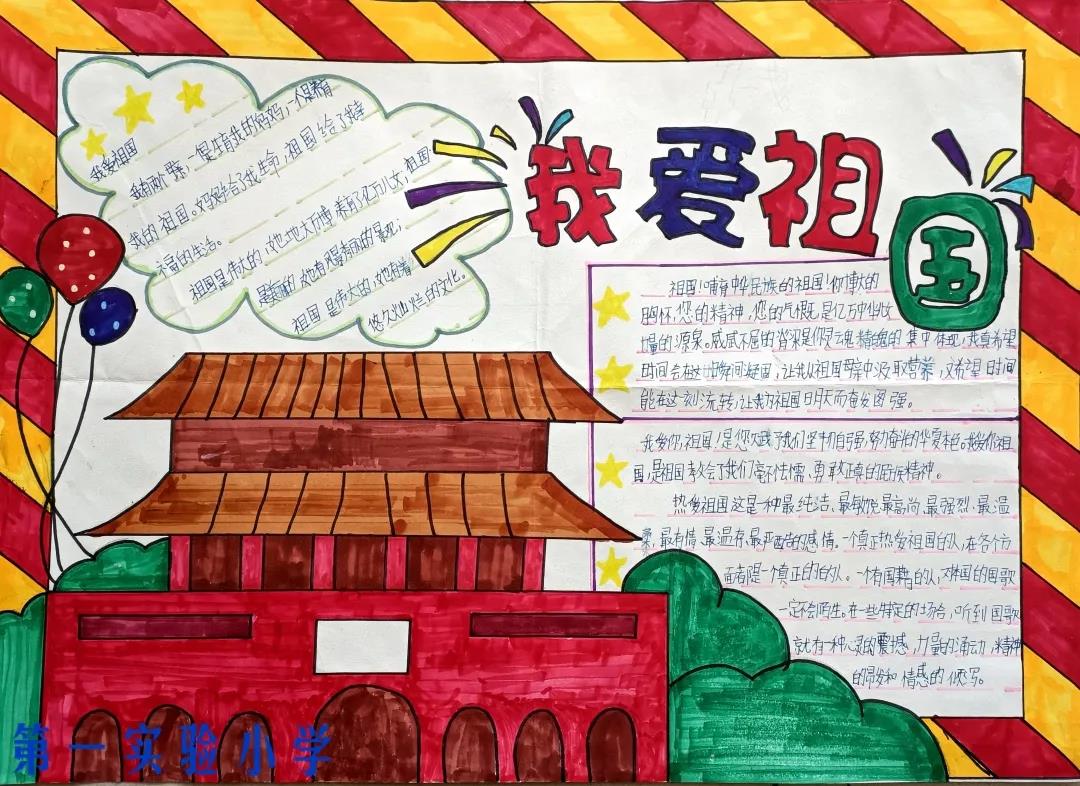 我爱祖国
我爱祖国
我有两个母亲，一个是生育我的妈妈，一个是养育
我的祖国。妈妈给了我生命，祖国给了我幸
福的生活。
祖国是伟大的，她地大万博，养育了亿万儿女，祖国
是美丽的，她有 着 丽的景观；
祖国是伟大的，她有着
悠久 灿烂的文化。
祖国！哺育中华民族的祖国！你博大的
胸怀，您的精神，您的气慨是亿万中华儿女
力量的源泉。威武不屈的脊梁是你灵魂精魄的集中体现，我真希望
时间会在这 瞬间凝固，让我从祖国母亲中汲取营养，又希望日时间
能在这刻流转，让我为祖国日明天而奋发图强。
我爱你，祖国！是您 了我们坚韧自强，努力奋斗的华夏本色。我爱你祖
国，是祖国教会了我们毫不怯懦、勇敢正真的民族精神。
热爱祖国这是一种最纯洁、最敏锐、最高尚、最强烈、最温
柔、最有情、最温存、最严酷的感情。一个真正热爱祖国的人，在各个方
面都是一个真正的的人。一个有国籍的人，对本国的国歌
一定不会陌生。在一些特定的场合，听到国歌
就有一种心灵的震撼，力量的涌动，精神
的昂发和情感的 写。
第一实验小学